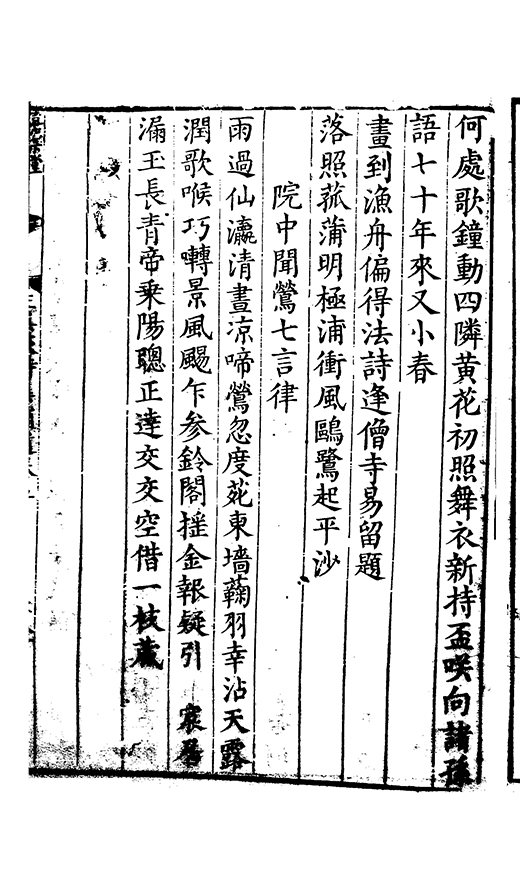 何處歌鐘動四隣黄花初照舞衣新持盃咲向諸孫
語七十年來又小春
畫到漁舟偏得法詩逢僧寺易留題
落照菰蒲明極浦衝風鷗鷺起平沙
院中聞鶯七言律
雨過仙瀛清晝凉啼鶯忽度苑東墻蘜羽幸沾天露
潤歌喉巧囀景風颺乍参鈴閣揺金報疑引宸居
漏玉長青帝乗陽聰正逹交交空借一枝蔵